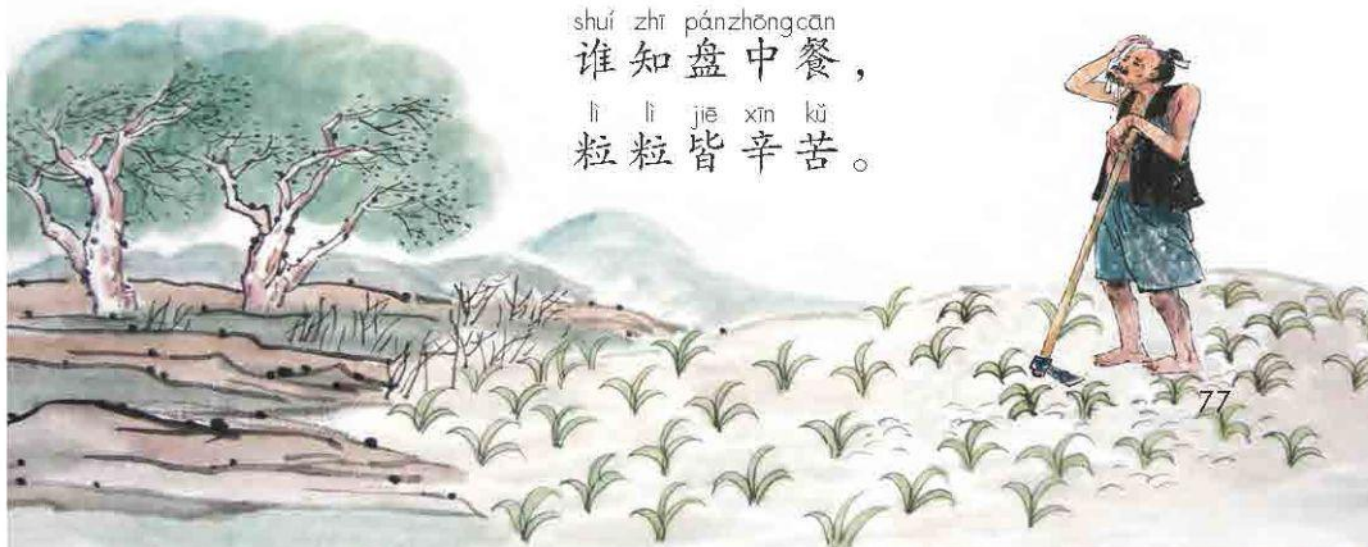 shuí zhī pánzhōngcān
谁知盘中餐，
lì lì jiē xīn kǔ
粒粒皆辛苦。
77